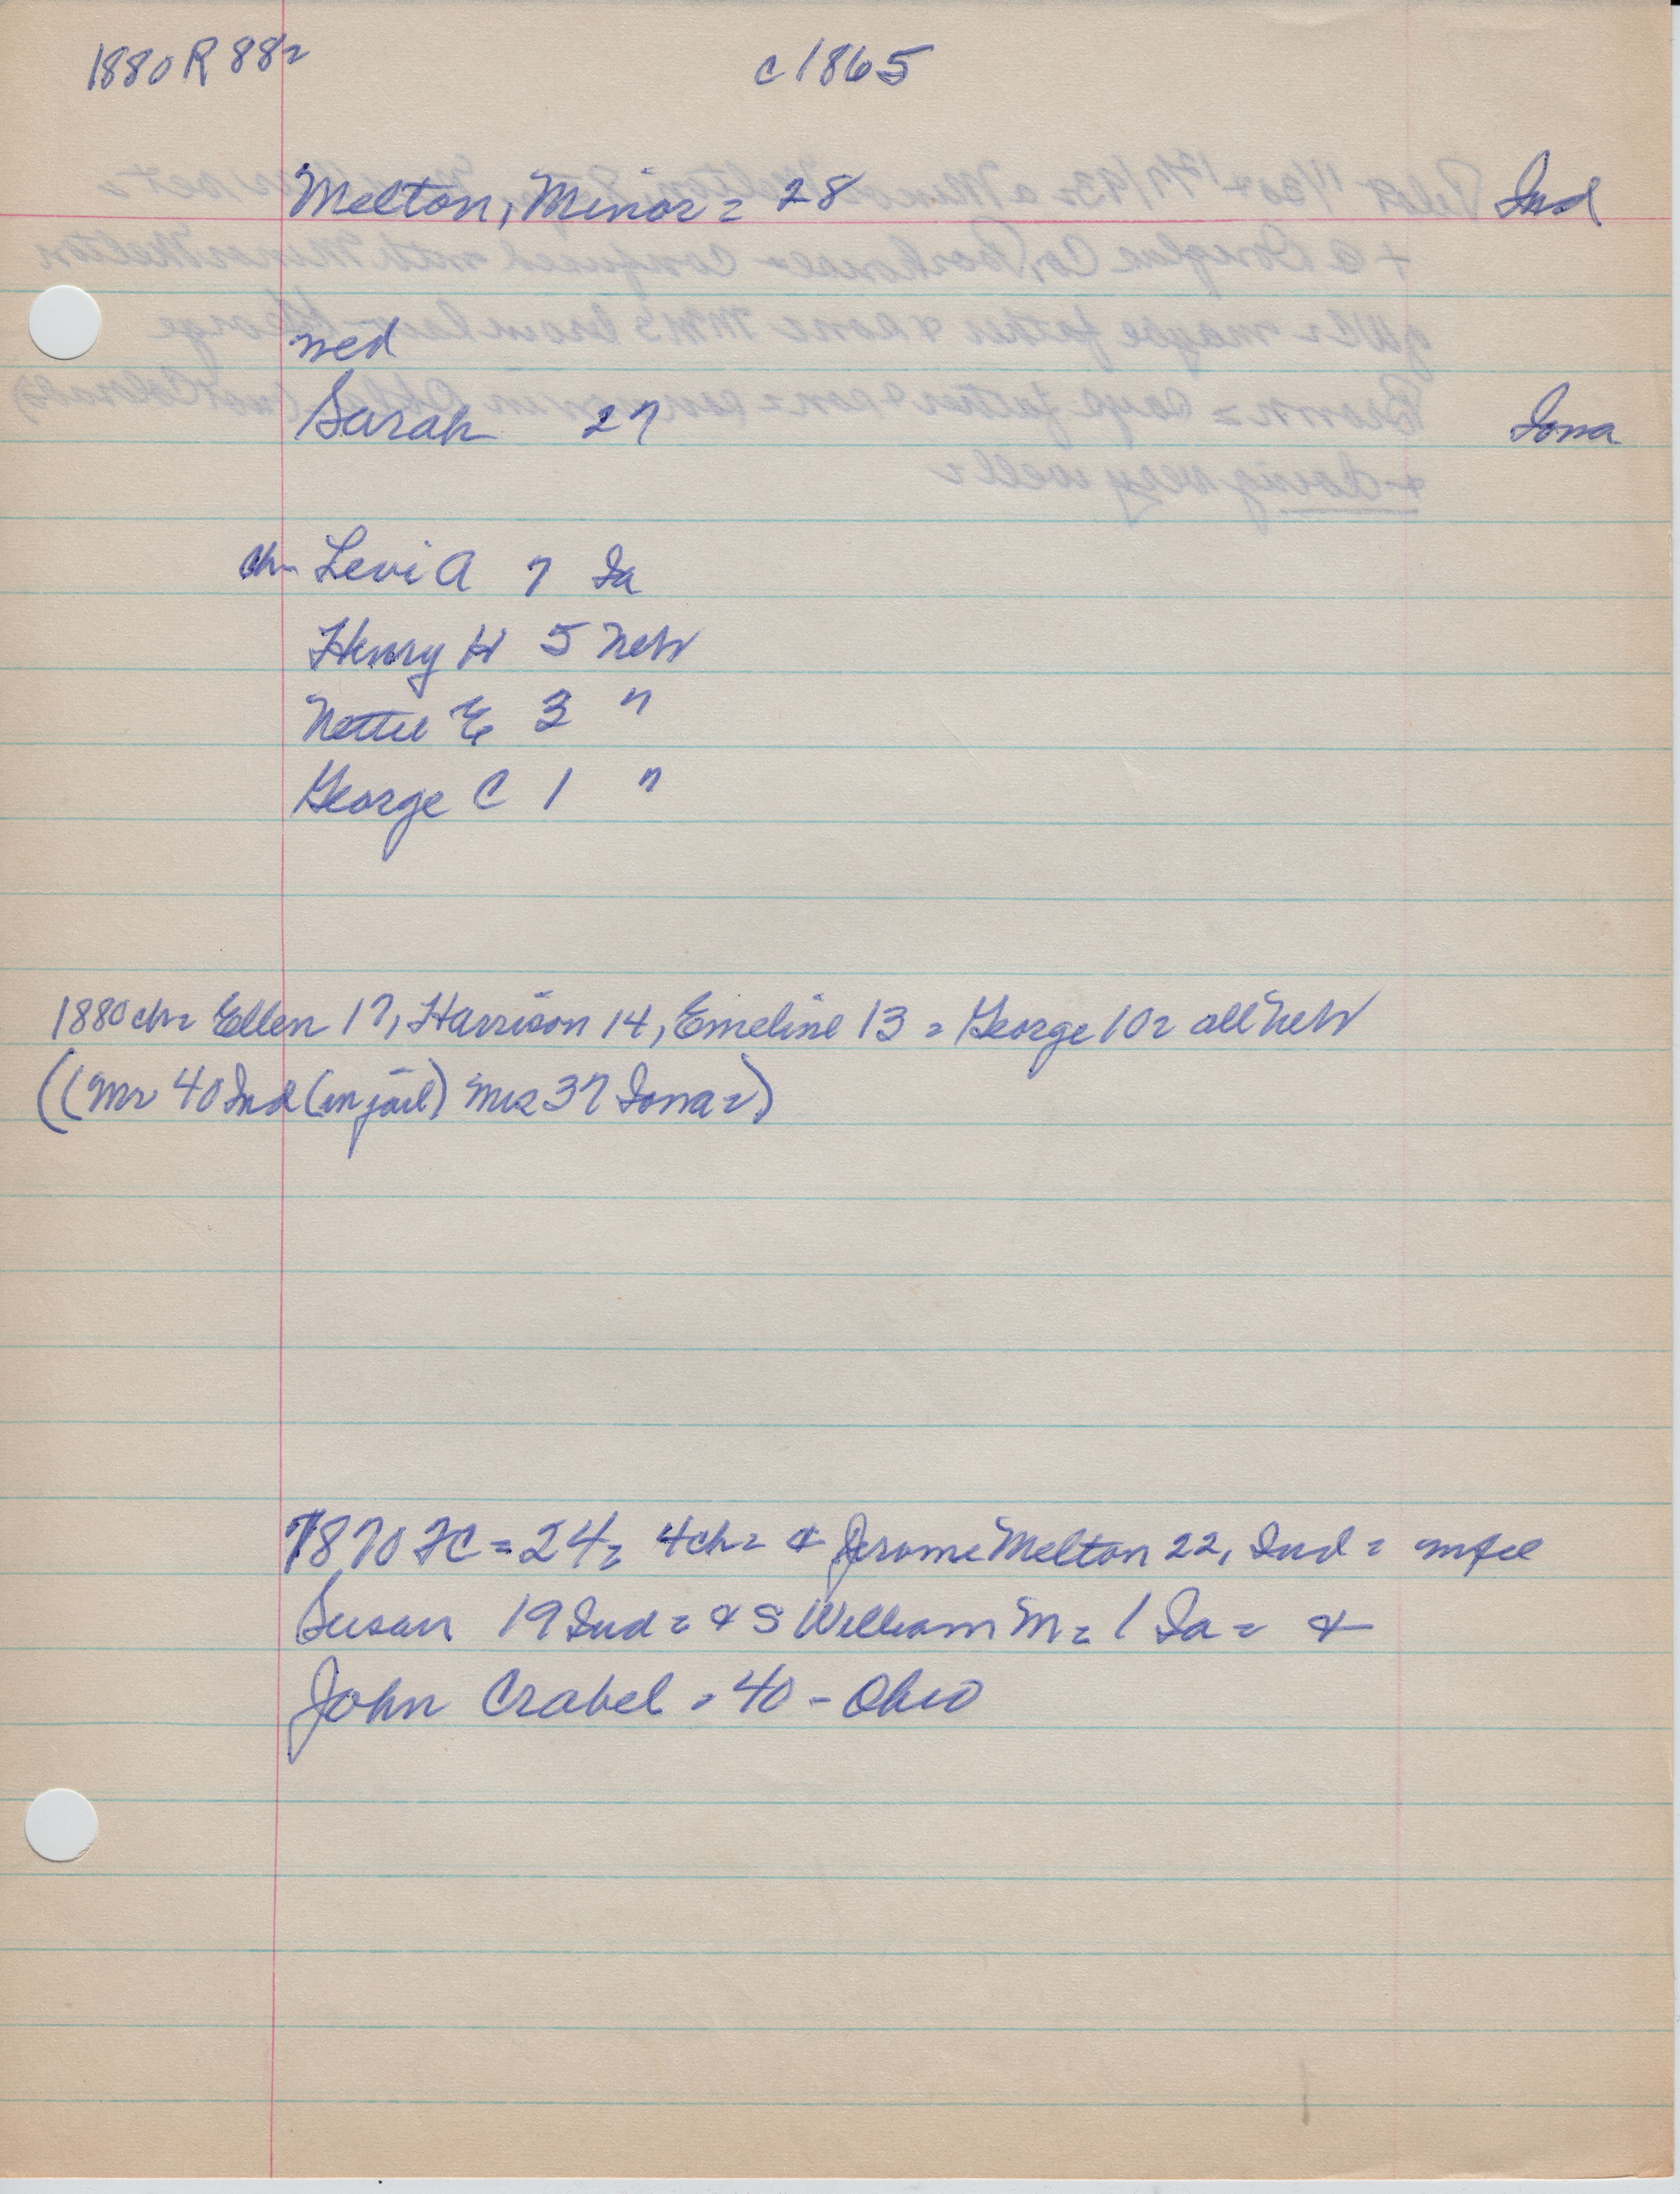 1880 R 88=
c 1865
Melton, Minor = 28 Ind
wed
Sarah 27 Iowa
ch- Levi A 7 Ia
Henry H 5 Neb
Nettie E 3 "
George C 1 "
1880 ch= Ellen 17, Harrison 14, Emeline 13 = George 10 = all Neb
((Mr 40 Ind (in jail) Mrs 37 Iowa =)
1870 FC = 24 = 4 ch = & Jerome Melton 22, Ind =
Susan 19 Ind = & S William M = 1 Ia = &
John Crabel = 40 - Ohio